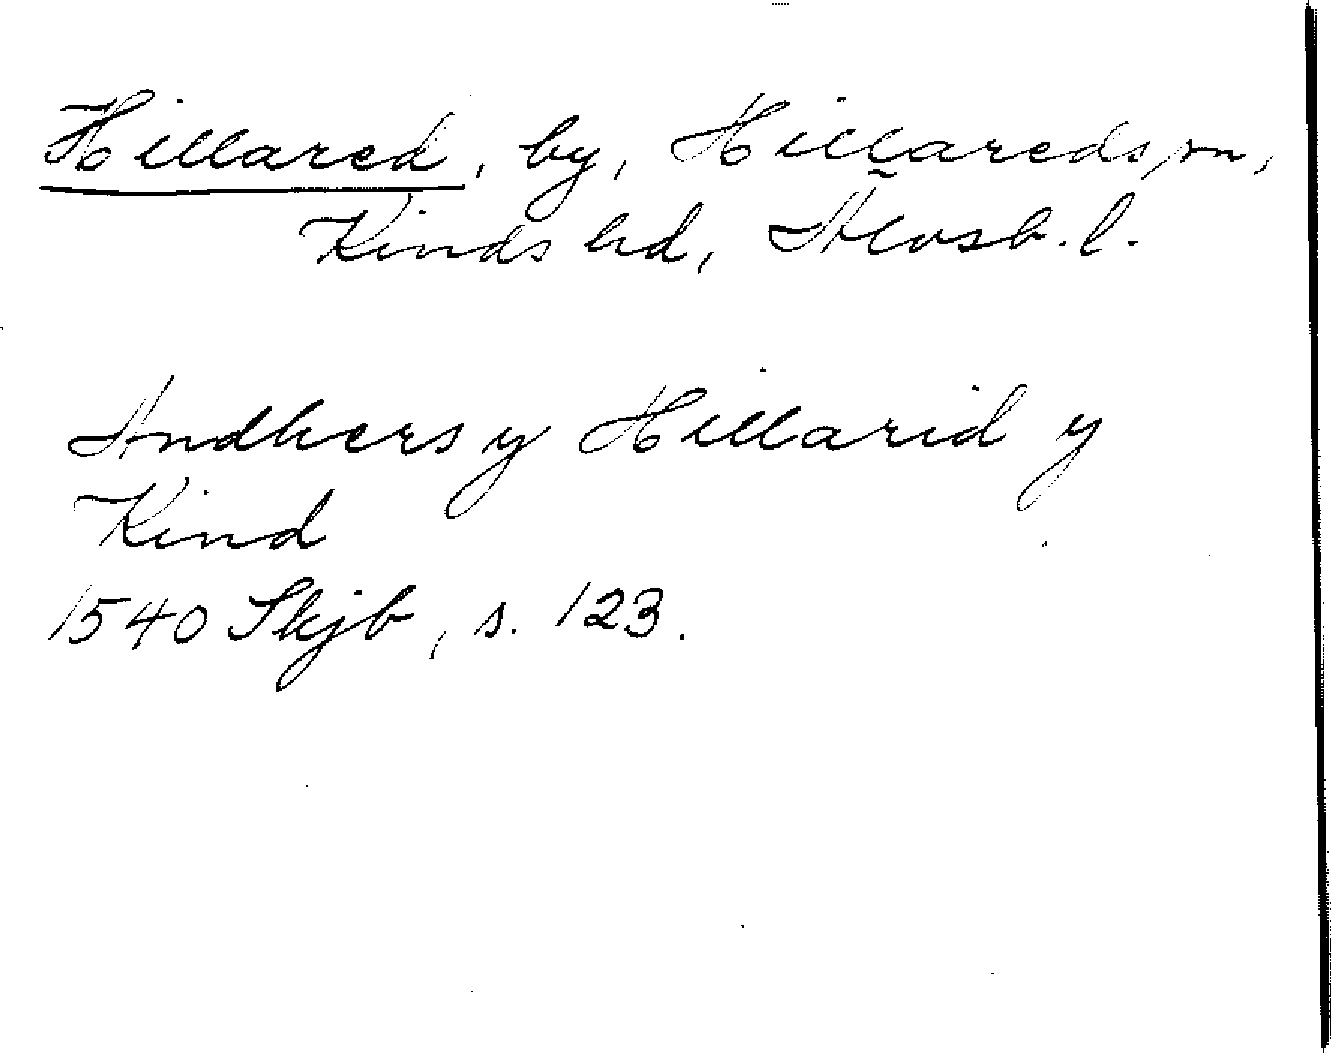 Hillared, by, Hillareds sn,
Kinds hd, Älvsb. l.
Andhers y Hillarid y
Kind
1540 Skjb, s. 123.